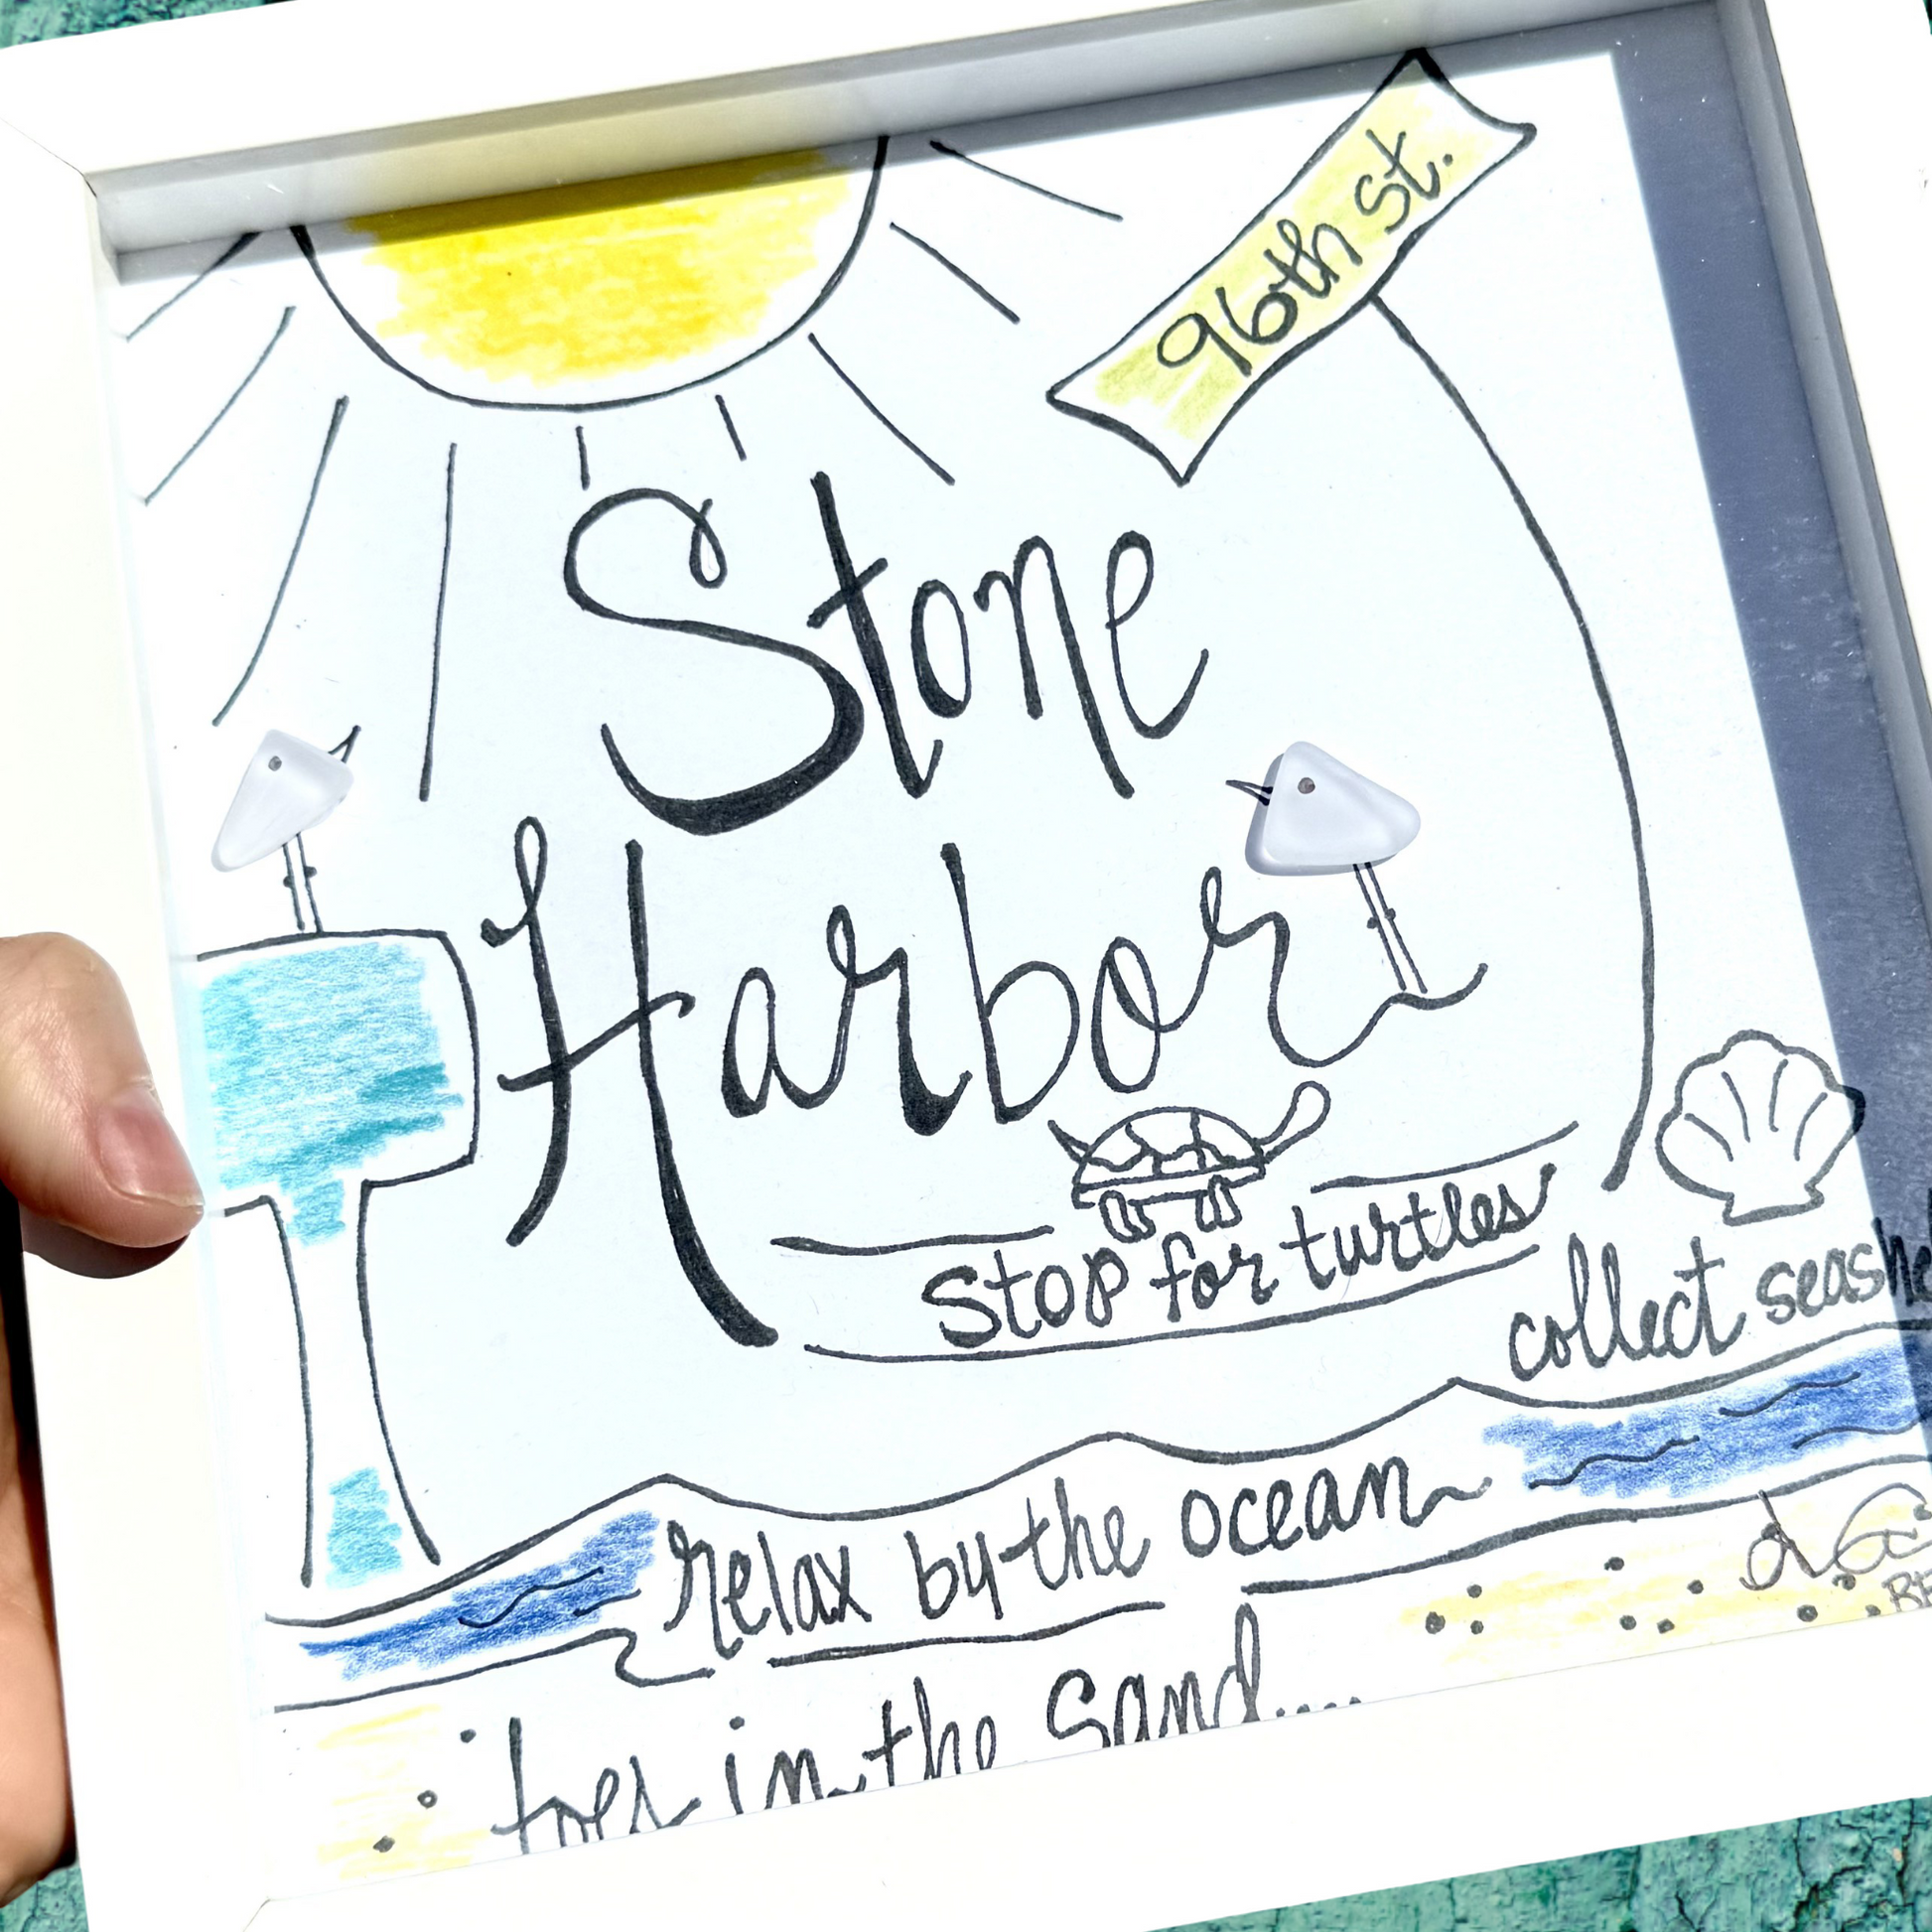 96th st.
Stone
Harbor
stop for turtles
collect
relax by the ocean
toes in the sand....